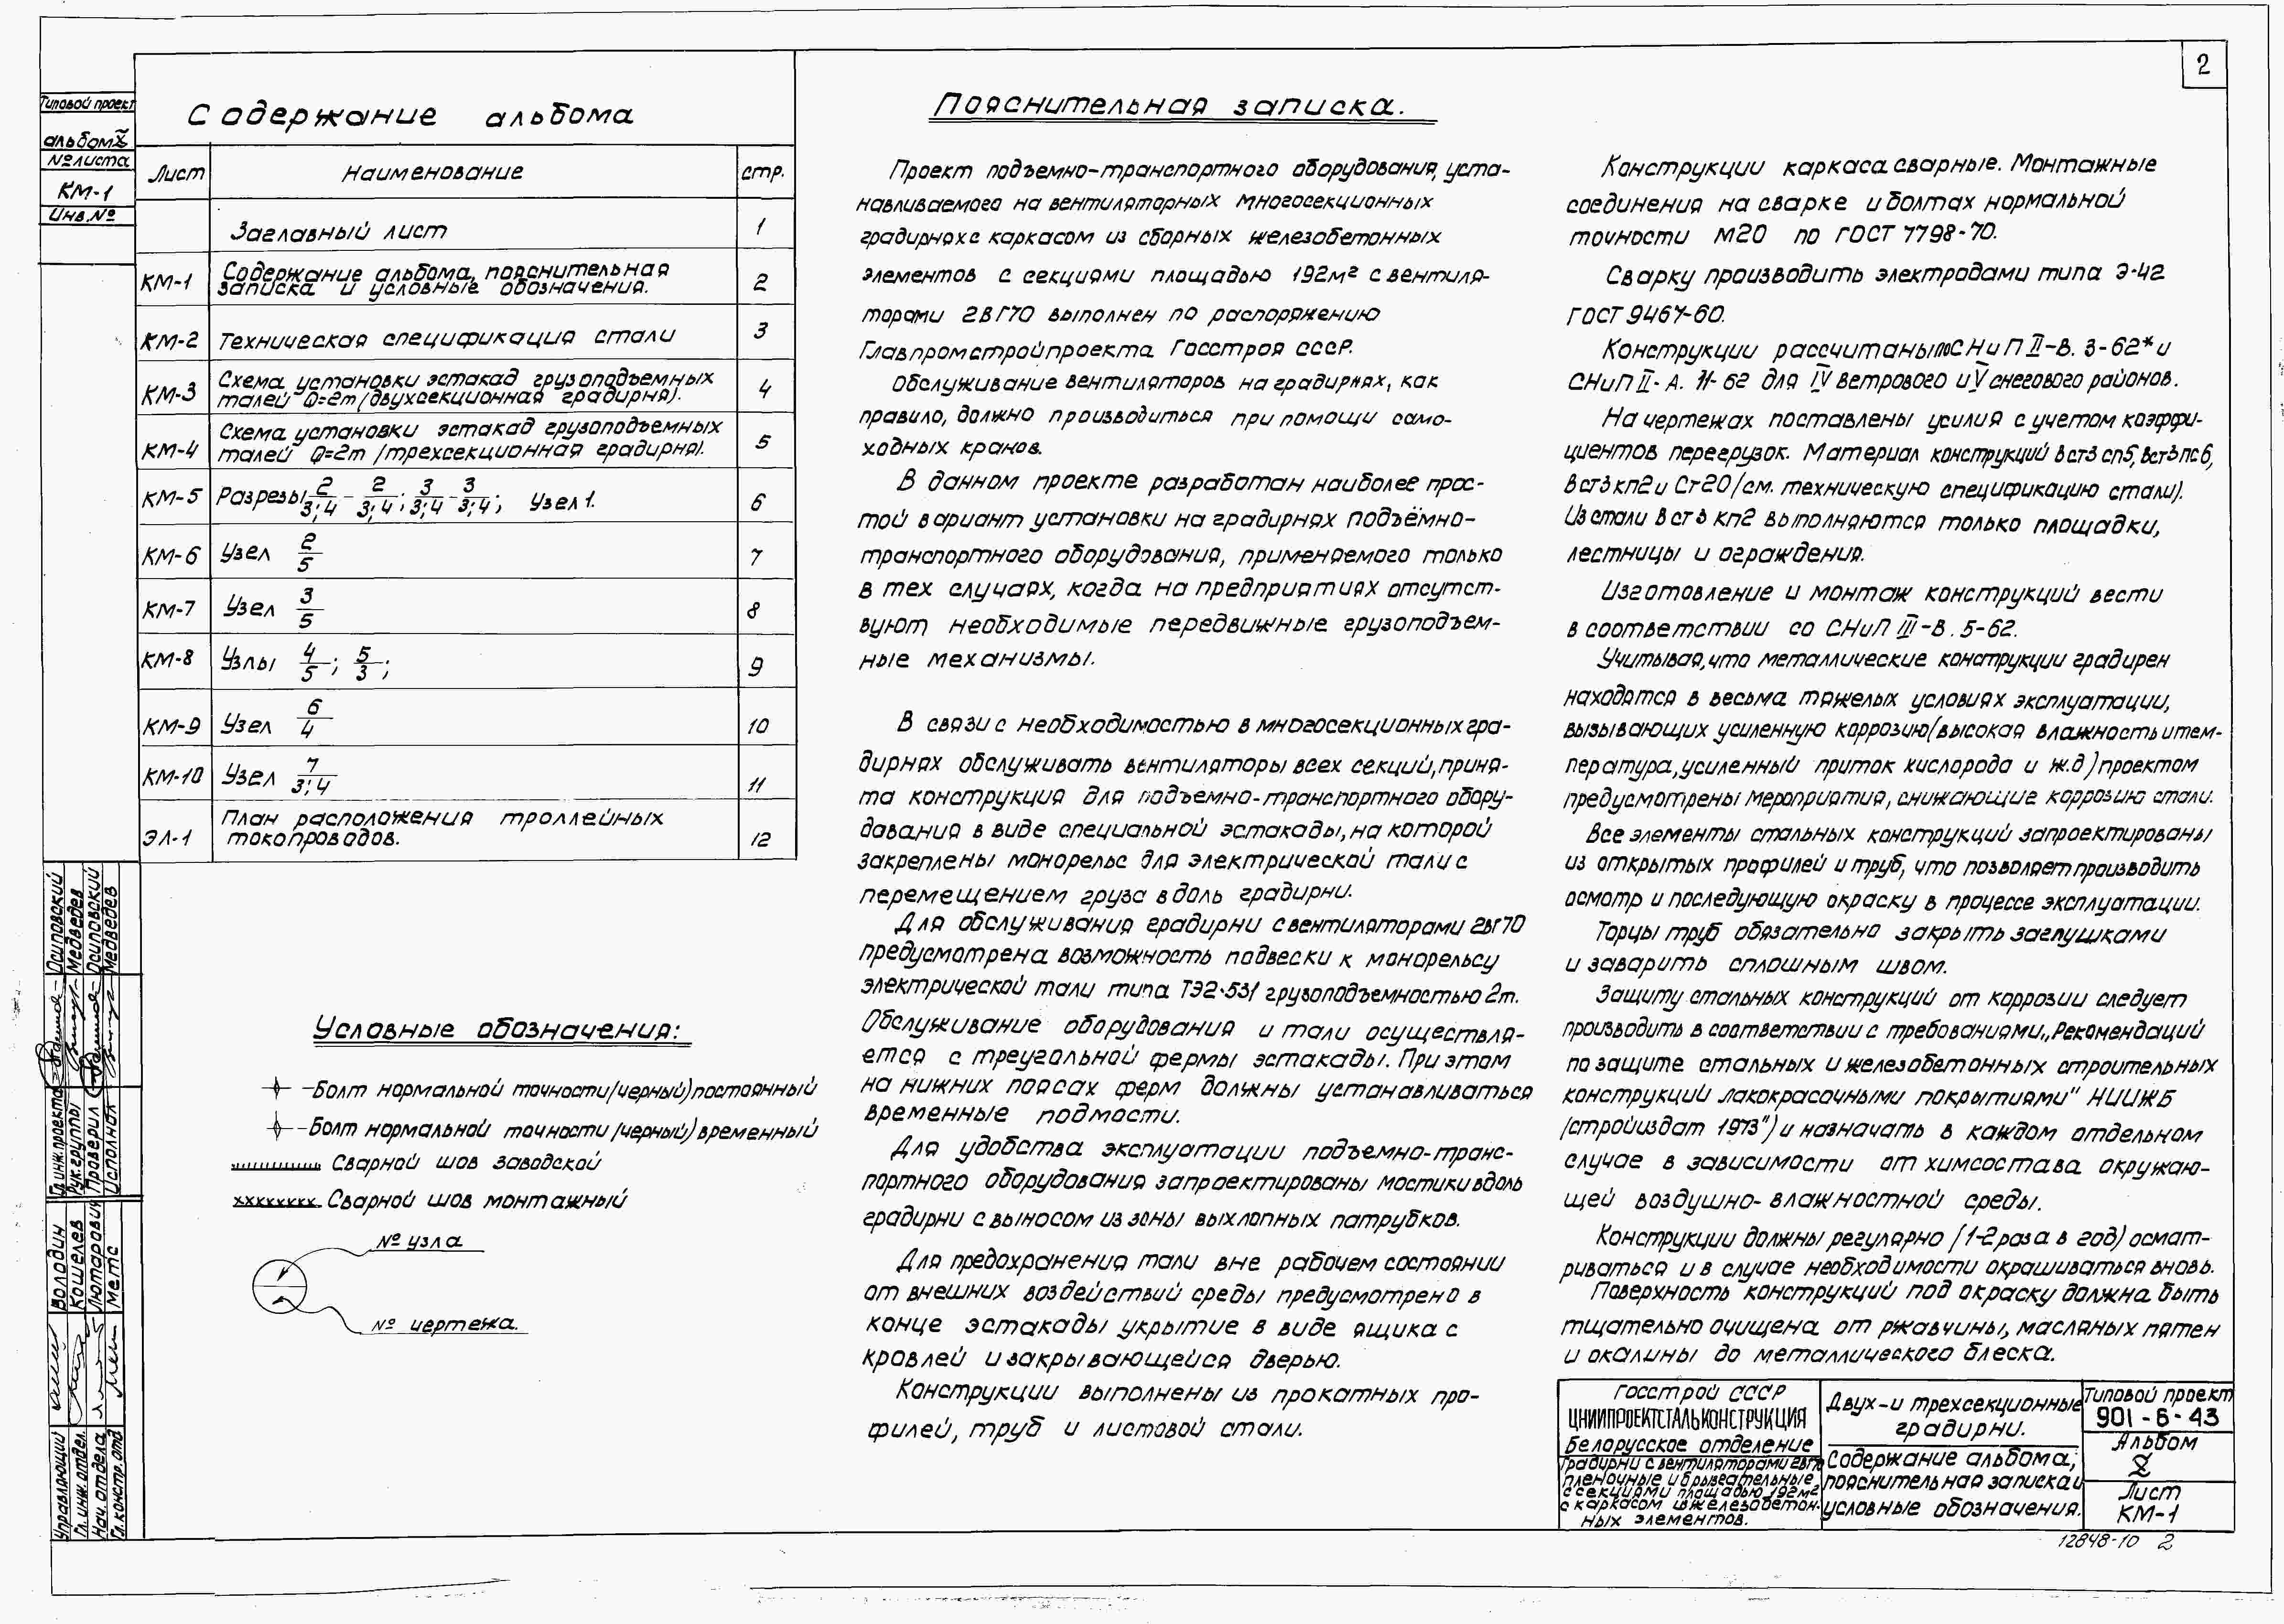 2
Типовой проект
альбом X
№ листа
КМ-1
Инв.№
Содержание альбома
Лист Наименование стр.
Заглавный лист 1
КМ-1 Содержание альбома, пояснительная записка и условные обозначения. 2
КМ-2 Техническая спецификация стали 3
КМ-3 Схема установки эстакад грузоподъемных талей Q=2т /двухсекционная градирня/. 4
КМ-4 Схема установки эстакад грузоподъемных талей Q=2т /трехсекционная градирня/. 5
КМ-5 Разрезы 2/3;4 - 2/3;4; 3/3;4 - 3/3;4; Узел 1. 6
КМ-6 Узел 2/5 7
КМ-7 Узел 3/5 8
КМ-8 Узлы 4/5; 5/3; 9
КМ-9 Узел 6/4 10
КМ-10 Узел 7/3;4 11
ЭЛ-1 План расположения троллейных токопроводов. 12
Условные обозначения:
-Болт нормальной точности/черный/постоянный
-Болт нормальной точности/черный/временный
Сварной шов заводской
Сварной шов монтажный
№ узла
№ чертежа.
Пояснительная записка.
Проект подъемно-транспортного оборудования, уста-
навливаемого на вентиляторных многосекционных
градирнях с каркасом из сборных железобетонных
элементов с секциями площадью 192м² с вентиля-
торами 2ВГ70 выполнен по распоряжению
Главпромстройпроекта Госстроя СССР.
Обслуживание вентиляторов на градирнях, как
правило, должно производиться при помощи само-
ходных кранов.
В данном проекте разработан наиболее прос-
той вариант установки на градирнях подъёмно-
транспортного оборудования, применяемого только
в тех случаях, когда на предприятиях отсутст-
вуют необходимые передвижные грузоподъем-
ные механизмы.
В связи с необходимостью в многосекционных гра-
дирнях обслуживать вентиляторы всех секций, приня-
та конструкция для подъемно-транспортного обору-
давания в виде специальной эстакады, на которой
закреплены монорельс для электрической тали с
перемещением груза вдоль градирни.
Для обслуживания градирни с вентиляторами 2ВГ70
предусмотрена возможность подвески к монорельсу
электрической тали типа ТЭ2-531 грузоподъемностью 2т.
Обслуживание оборудования и тали осуществля-
ется с треугольной фермы эстакады. При этом
на нижних поясах ферм должны устанавливаться
временные подмости.
Для удобства эксплуатации подъемно-транс-
портного оборудования запроектированы мостики вдоль
градирни с выносом из зоны выхлопных патрубков.
Для предохранения тали вне рабочем состоянии
от внешних воздействий среды предусмотрено в
конце эстакады укрытие в виде ящика с
кровлей и закрывающейся дверью.
Конструкции выполнены из прокатных про-
филей, труб и листовой стали.
Конструкции каркаса сварные. Монтажные
соединения на сварке и болтах нормальной
точности М20 по ГОСТ 7798-70.
Сварку производить электродами типа Э-42
ГОСТ 9467-60.
Конструкции рассчитаны по СНиП II-В. 3-62* и
СНиП II-А. 11-62 для IV ветрового и V снегового районов.
На чертежах поставлены усилия с учетом коэффи-
циентов перегрузок. Материал конструкций Вст3сп5, Вст3пс6,
Вст3кп2 и Ст20/см. техническую спецификацию стали/.
Из стали Вст3кп2 выполняются только площадки,
лестницы и ограждения.
Изготовление и монтаж конструкций вести
в соответствии со СНиП III-В. 5-62.
Учитывая, что металлические конструкции градирен
находятся в весьма тяжелых условиях эксплуатации,
вызывающих усиленную коррозию/высокая влажность и тем-
пература, усиленный приток кислорода и ж.д/ проектом
предусмотрены мероприятия, снижающие коррозию стали.
Все элементы стальных конструкций запроектированы
из открытых профилей и труб, что позволяет производить
осмотр и последующую окраску в процессе эксплуатации.
Торцы труб обязательно закрыть заглушками
и заварить сплошным швом.
Защиту стальных конструкций от коррозии следует
производить в соответствии с требованиями „Рекомендаций
по защите стальных и железобетонных строительных
конструкций лакокрасочными покрытиями" НИИЖБ
/стройиздат 1973"/ и назначать в каждом отдельном
случае в зависимости от химсостава окружаю-
щей воздушно-влажностной среды.
Конструкции должны регулярно (1-2 раза в год) осмат-
риваться и в случае необходимости окрашиваться вновь.
Поверхность конструкций под окраску должна быть
тщательно очищена от ржавчины, масляных пятен
и окалины до металлического блеска.
Госстрой СССР
ЦНИИПРОЕКТСТАЛЬКОНСТРУКЦИЯ
Белорусское отделение
Градирни с вентиляторами 2ВГ70
пленочные и брызгательные
с секциями площадью 192м²
с каркасом из железобетон-
ных элементов.
Двух-и трехсекционные
градирни.
Содержание альбома,
пояснительная записка и
условные обозначения.
Типовой проект
901-6-43
Альбом
X
Лист
КМ-1
12848-10 2
Гл. инж. проекта Осиповский
Рук. группы Медведев
Проверил Осиповский
Исполнил Медведев
Управляющий Володин
Гл. инж. отдел. Кошелев
Нач. отдела Лютарович
Гл. констр. отд Метс